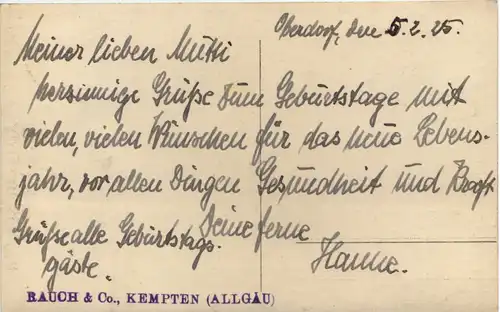 Oberdorf, den 5.2.25.
Meiner lieben Mutti
herzinnige Grüße zum Geburtstage mit
vielen, vielen Wünschen für das neue Lebens-
jahr, vor allen Dingen Gesundheit und Kraft
Deine ferne
Hanne.
Grüße alle Geburtstags-
gäste.
RAUCH & Co., KEMPTEN (ALLGÄU)